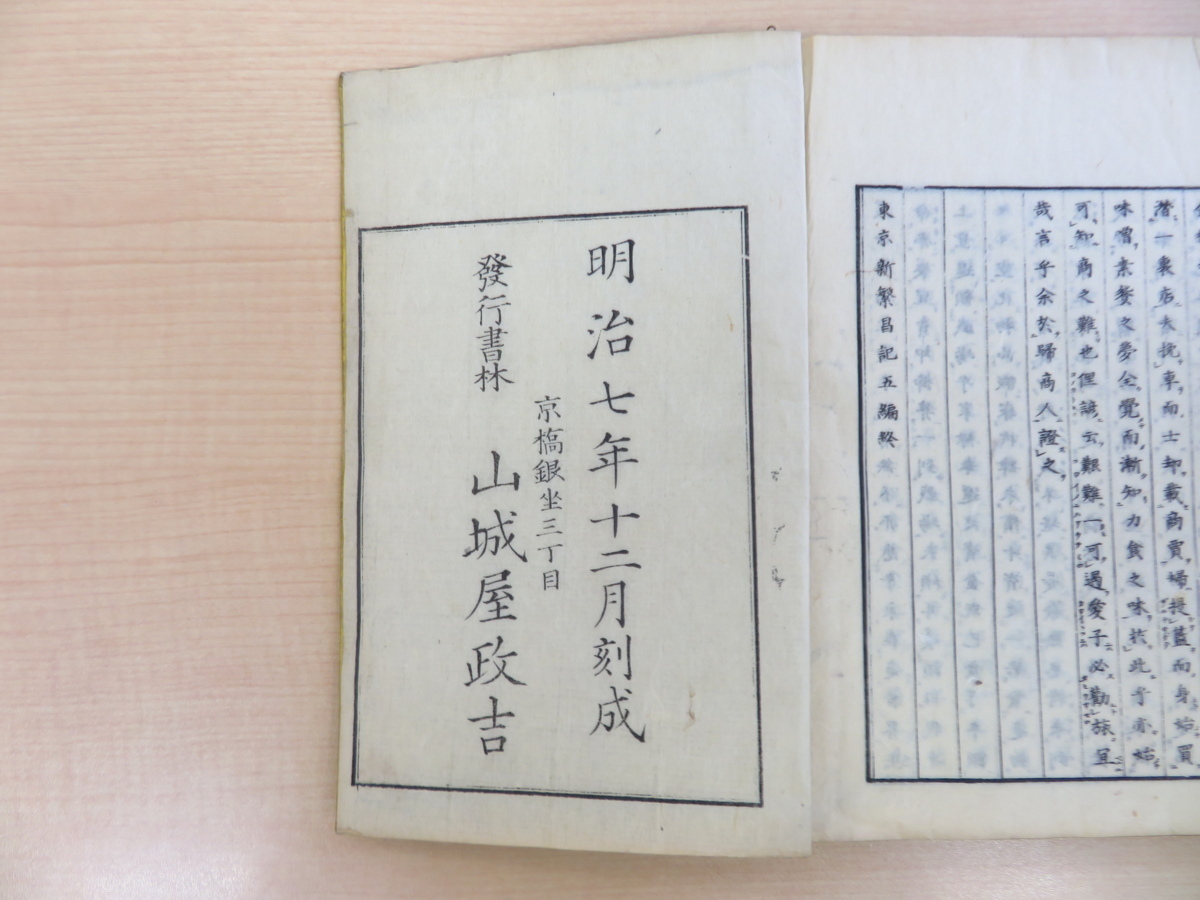 潜一裏店夫挽車而士却載商賈婦提籃而身始買
味噌素餐之夢全覺而漸知力食之味於此乎亦始
可知商之難也但諺云艱難一可過愛子必勸旅宜
哉言乎余於歸商人證之
東京新繁昌記五編終
明治七年十二月刻成
京橋銀坐三丁目
發行書林 山城屋政吉